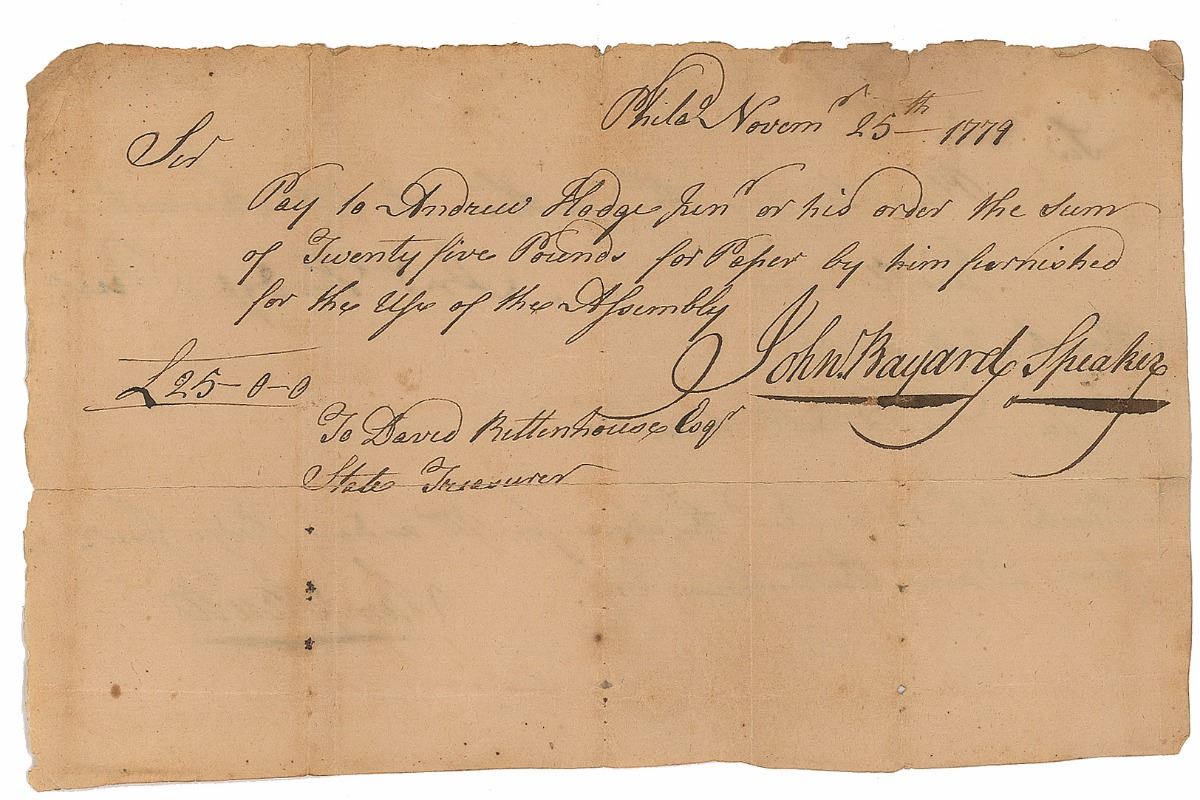 Philad Novemr 25th 1779
Sir
Pay to Andrew Hodge Junr or his order the Sum
of Twenty five Pounds for Paper by him furnished
for the Use of the Assembly
John Bayard Speaker
£25-0-0
To David Rittenhouse Esqr
State Treasurer